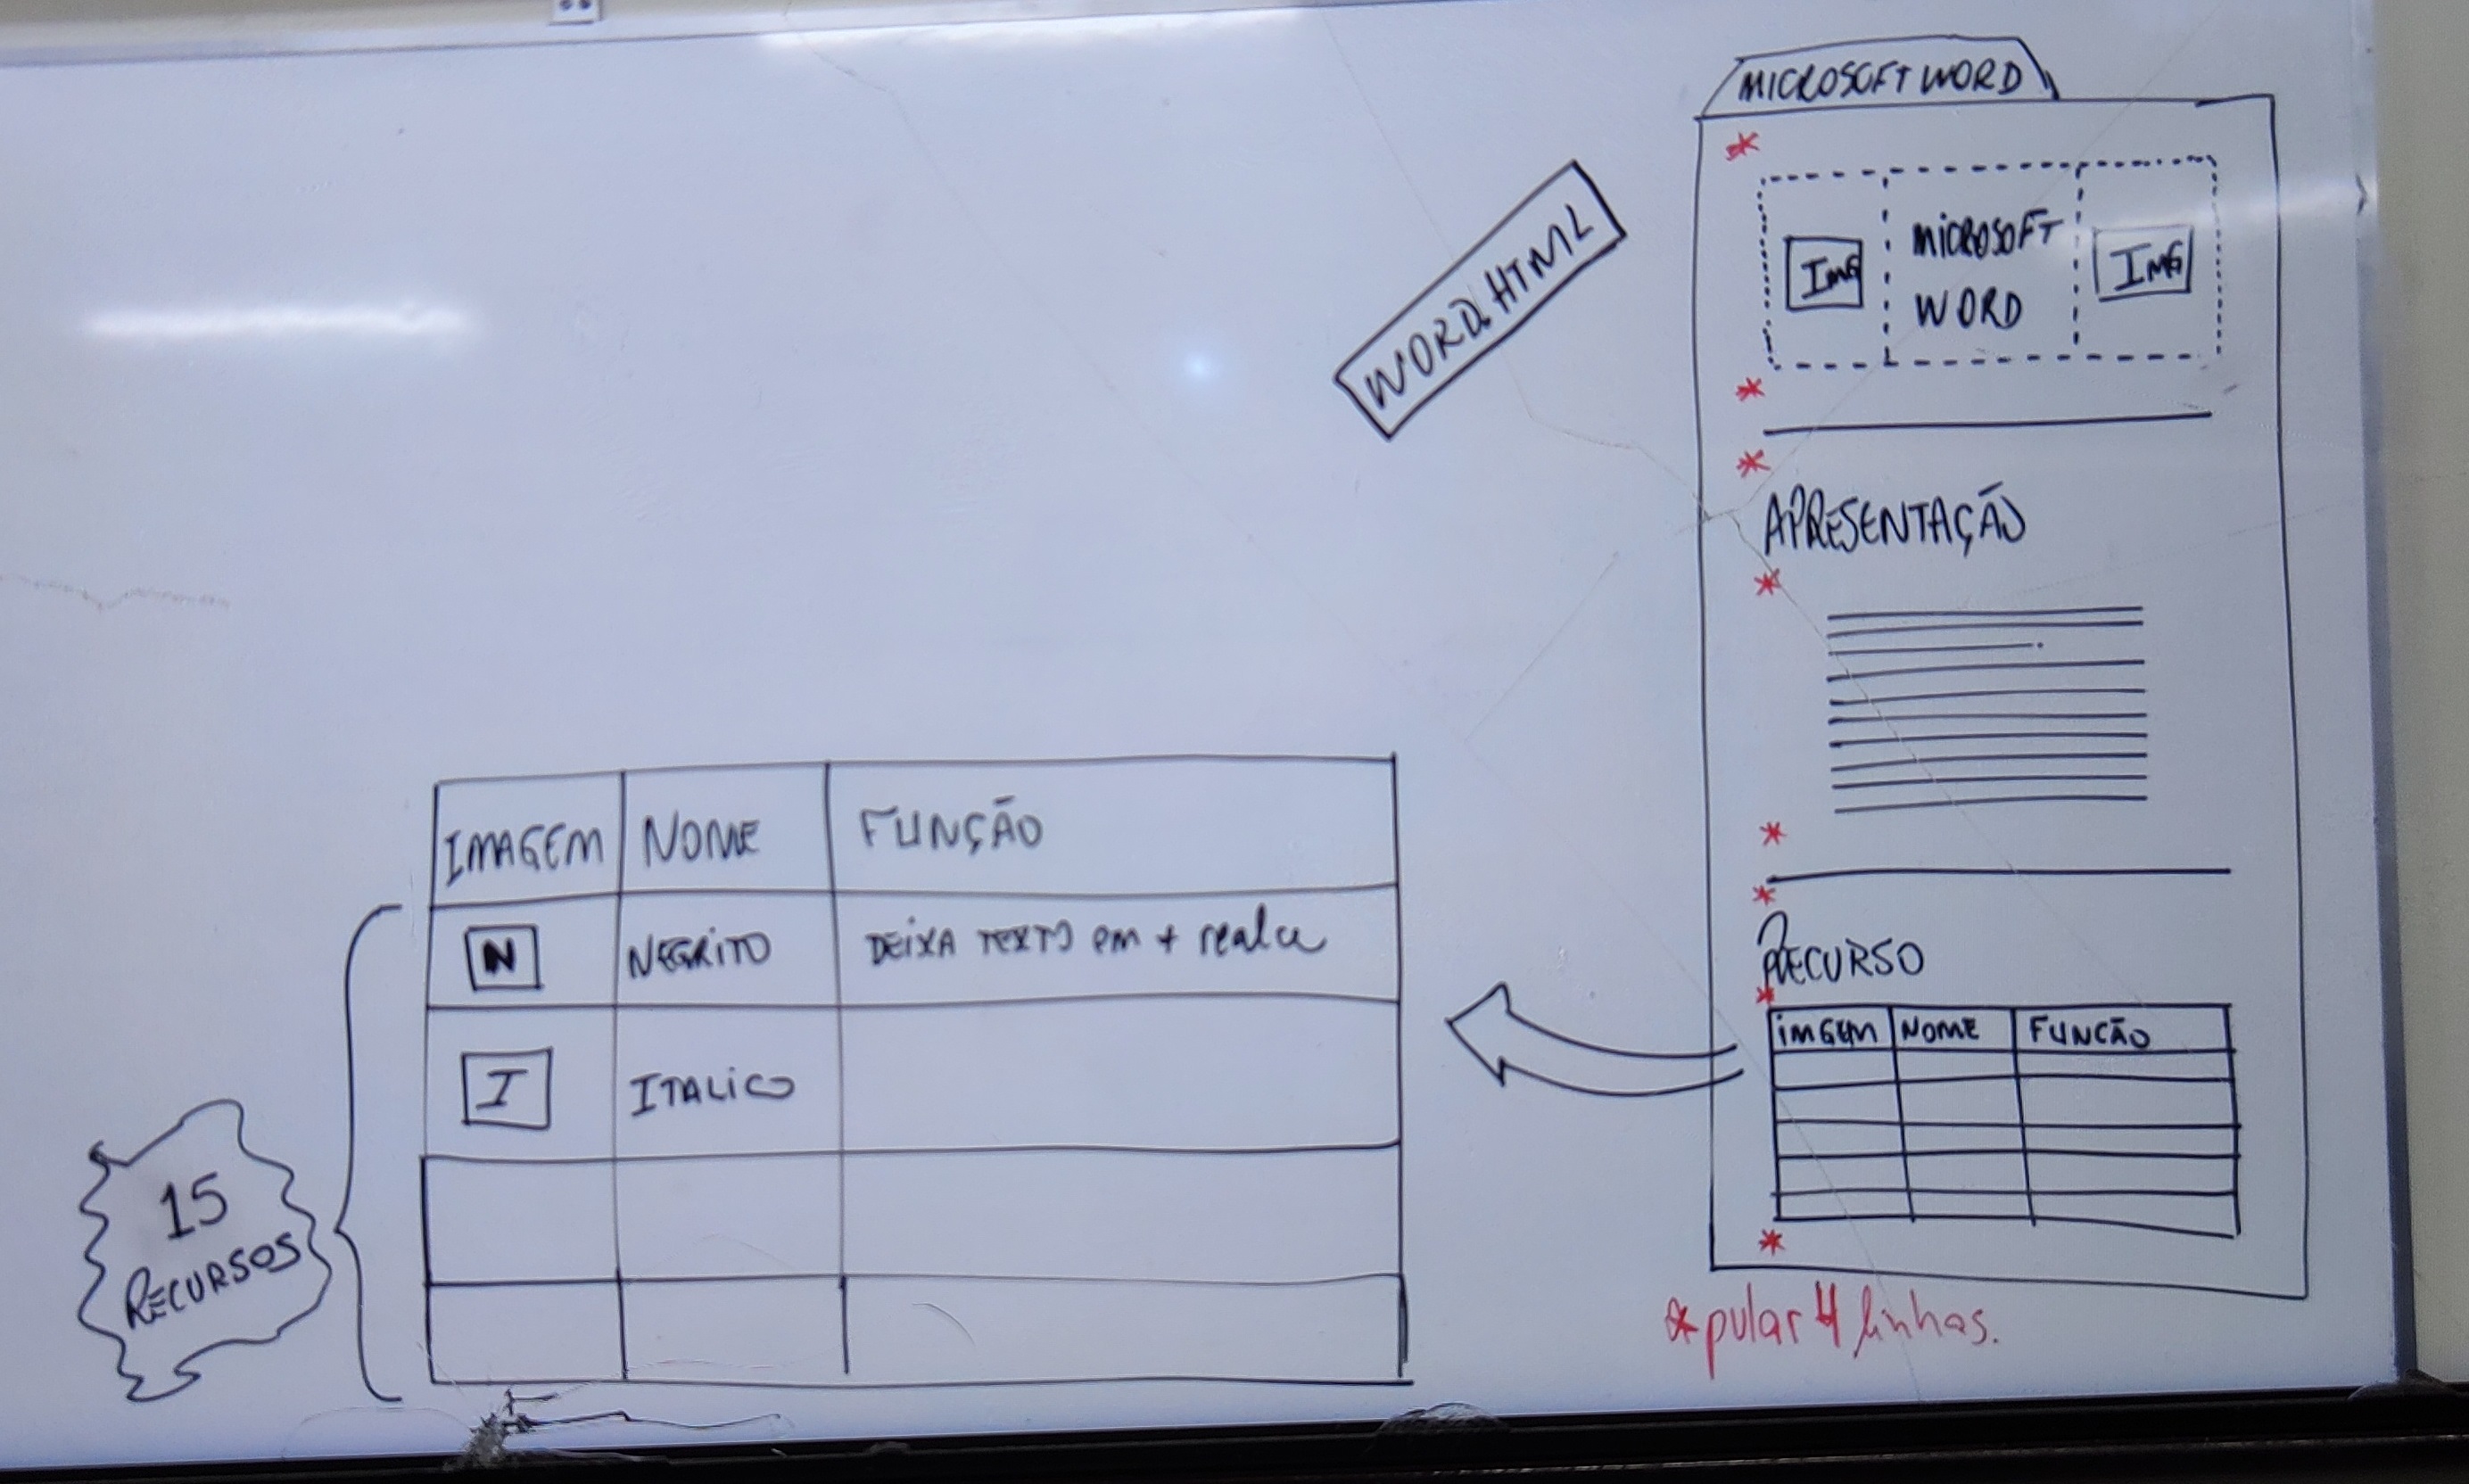 MICROSOFT WORD
*
IMG
MICROSOFT
WORD
IMG
*
WORD.HTML
*
APRESENTAÇÃO
*
*
*
RECURSO
*
IMGEM NOME FUNCÃO
*
*pular 4 linhas.
IMAGEM NOME FUNÇÃO
N NEGRITO DEIXA TEXTO em + realce
I ITALICO
15
RECURSOS